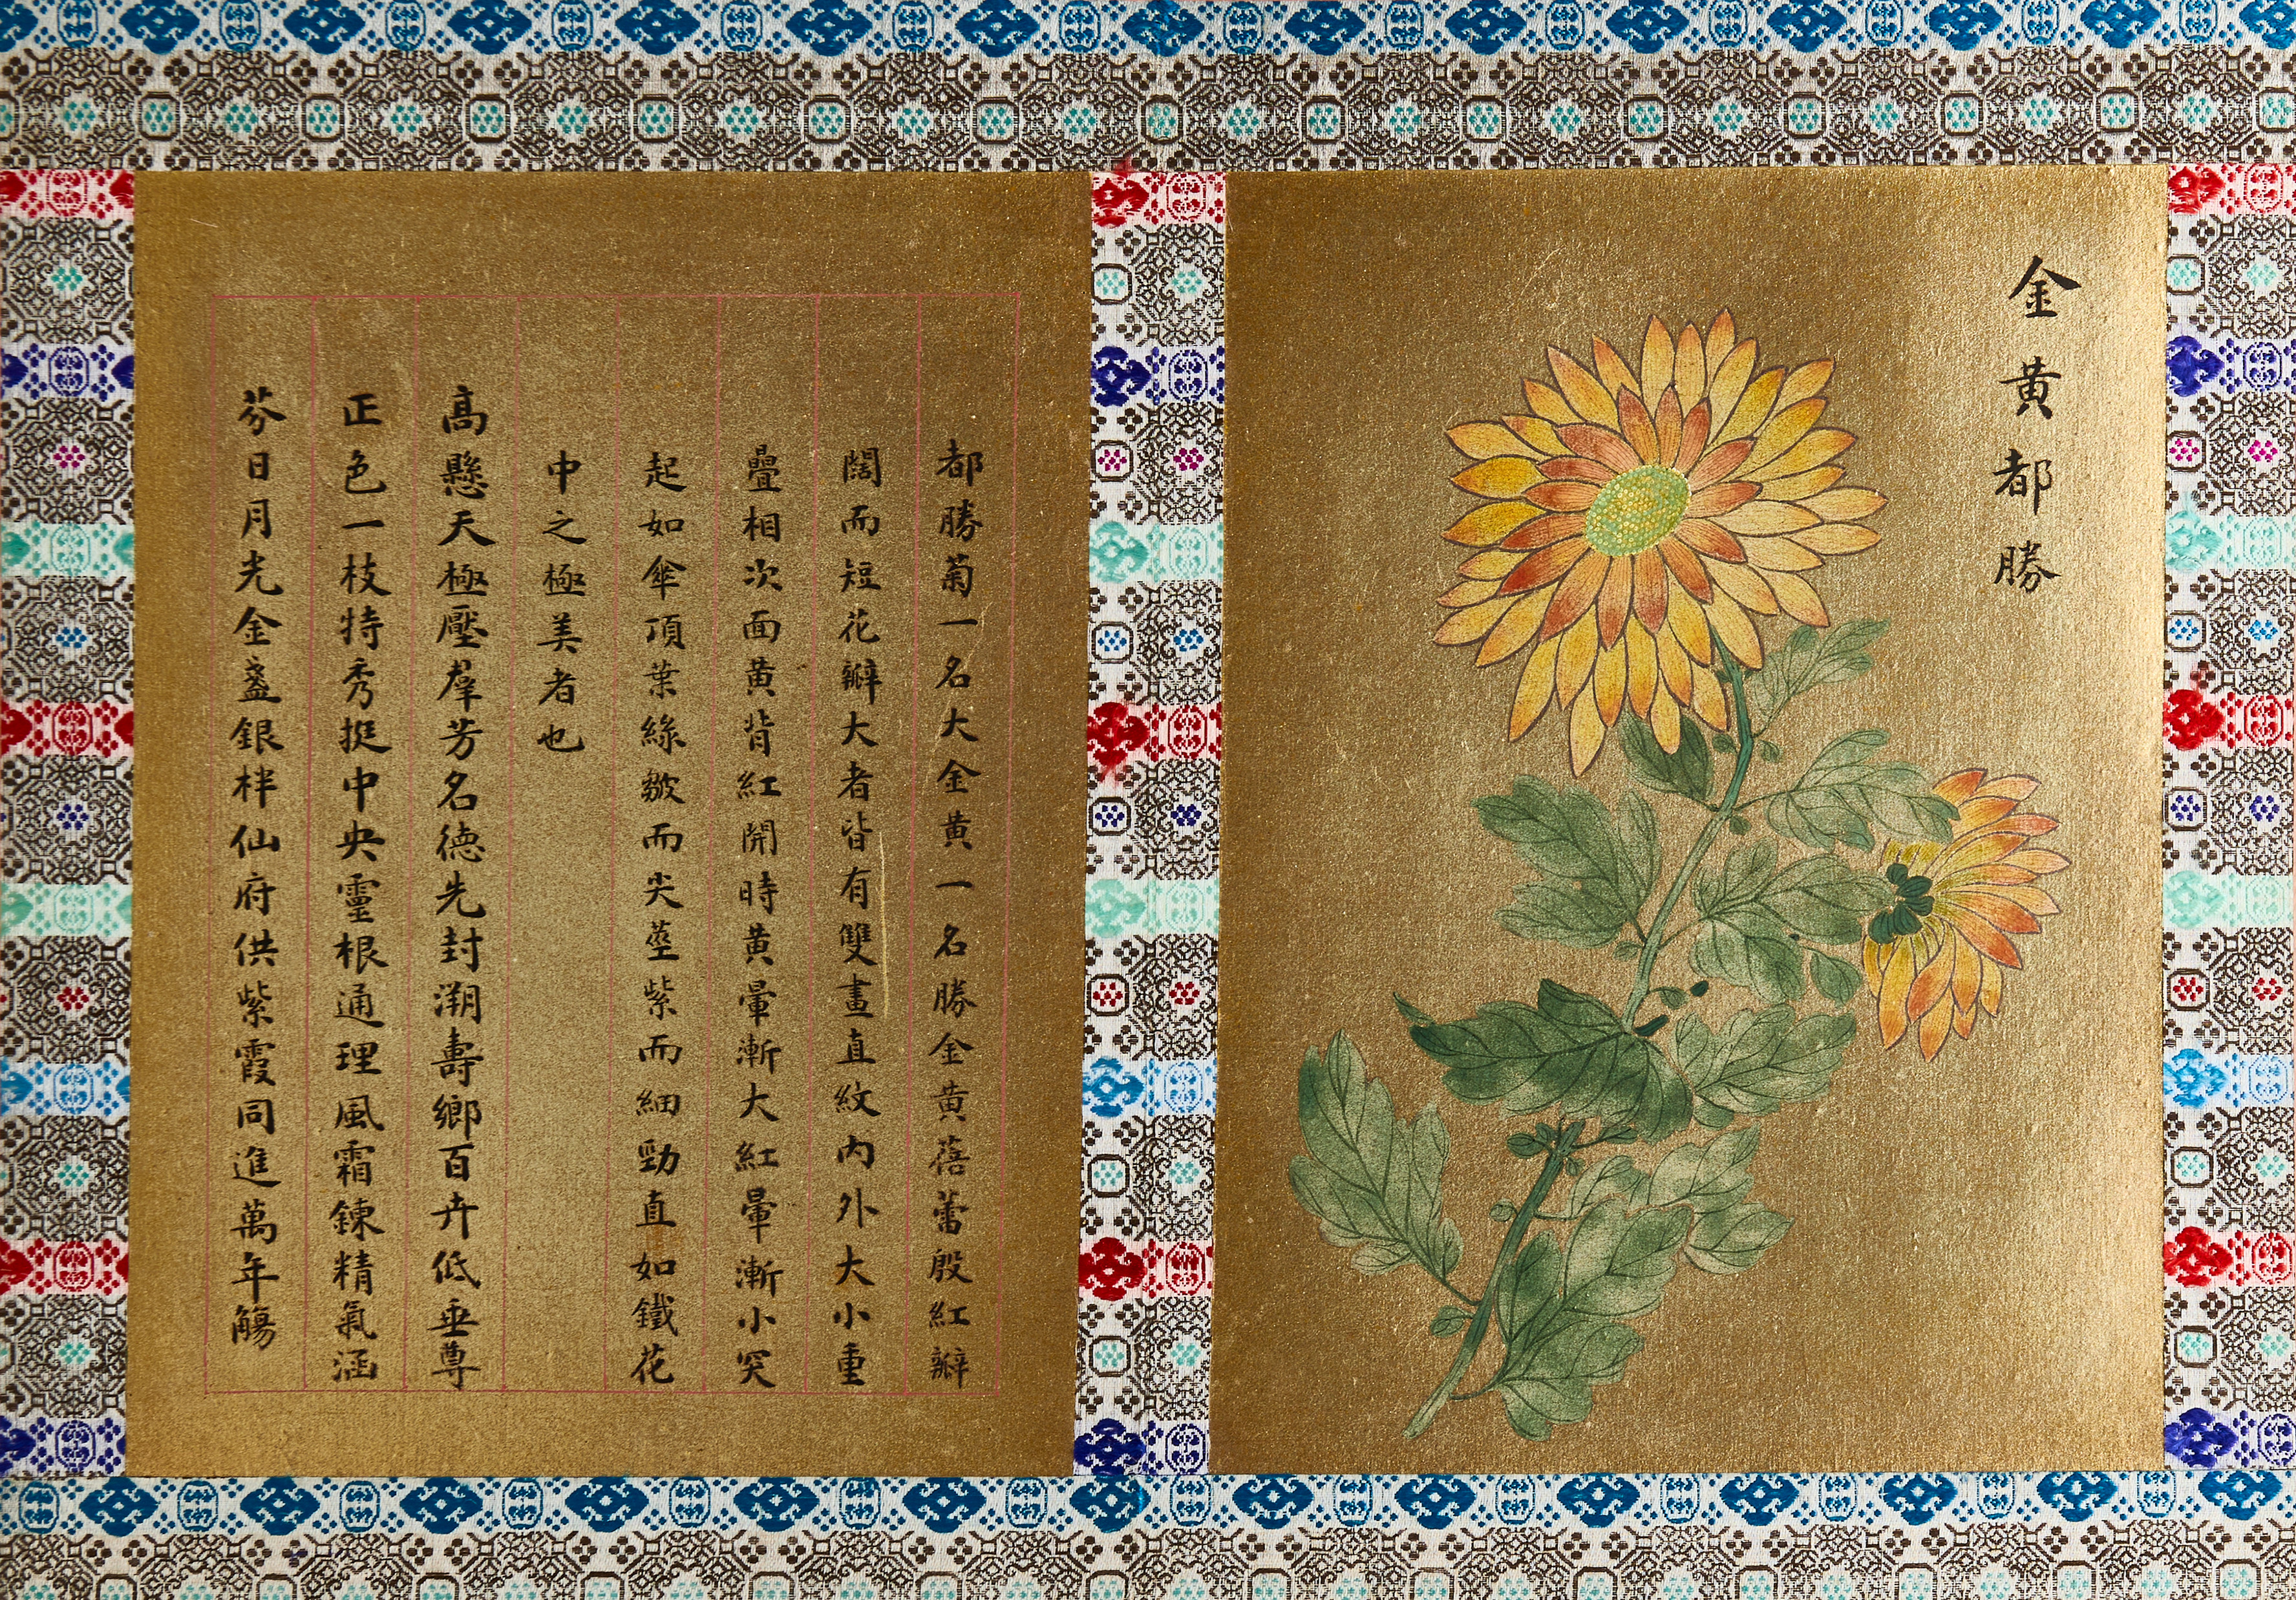 金黄都勝
都勝菊一名大金黄一名勝金黄蓓蕾殷紅瓣
闊而短花瓣大者皆有雙畫直紋内外大小重
疊相次面黄背紅開時黄暈漸大紅暈漸小突
起如傘頂葉綠皺而尖莖紫而細勁直如鐵花
中之極美者也
高懸天極壓羣芳名德先封溯壽鄉百卉低垂尊
正色一枝特秀挺中央靈根通理風霜鍊精氣涵
芬日月光金盞銀柈仙府供紫霞同進萬年觴